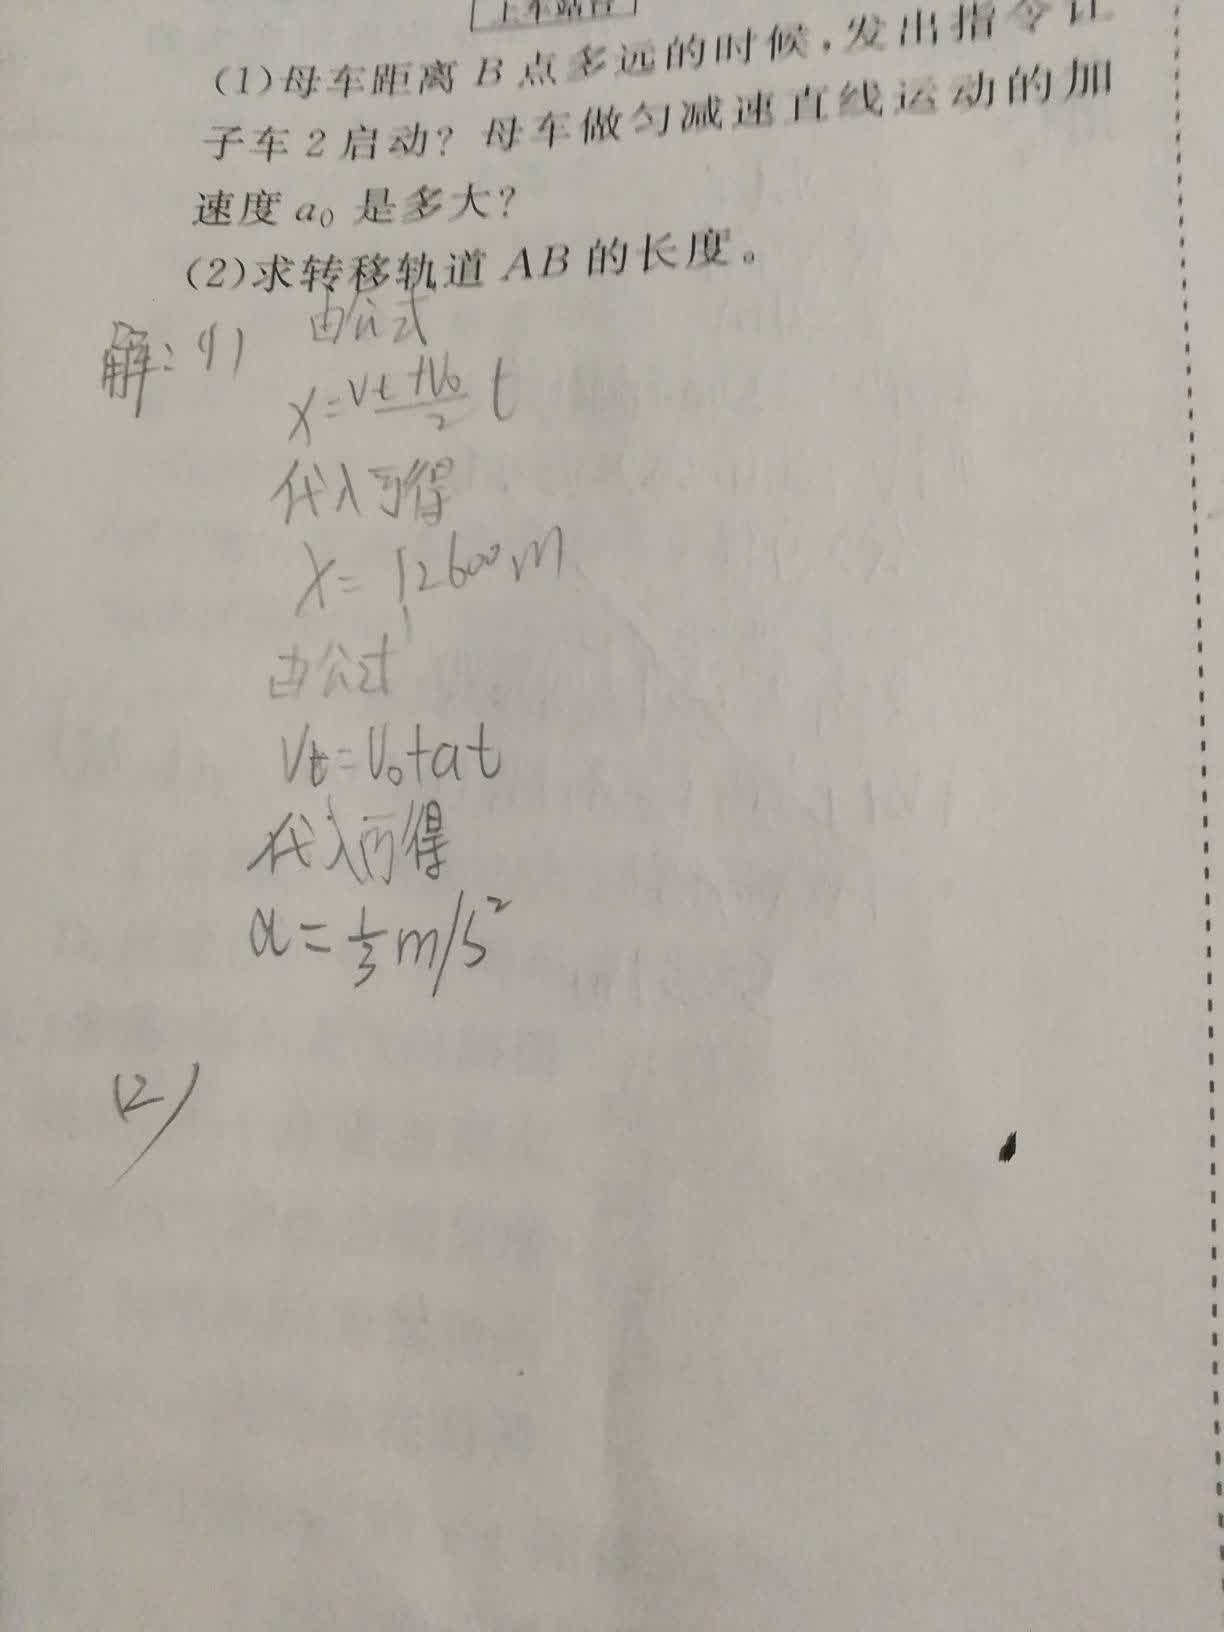 上车站台
(1)母车距离B点多远的时候,发出指令让
子车2启动?母车做匀减速直线运动的加
速度a₀是多大?
(2)求转移轨道AB的长度。
解:(1) 由公式
x=\frac{Vt+V₀}{2}t
代入可得
x=12600m
由公式
Vt=V₀+at
代入可得
a=\frac{1}{3}m/s²
(2)